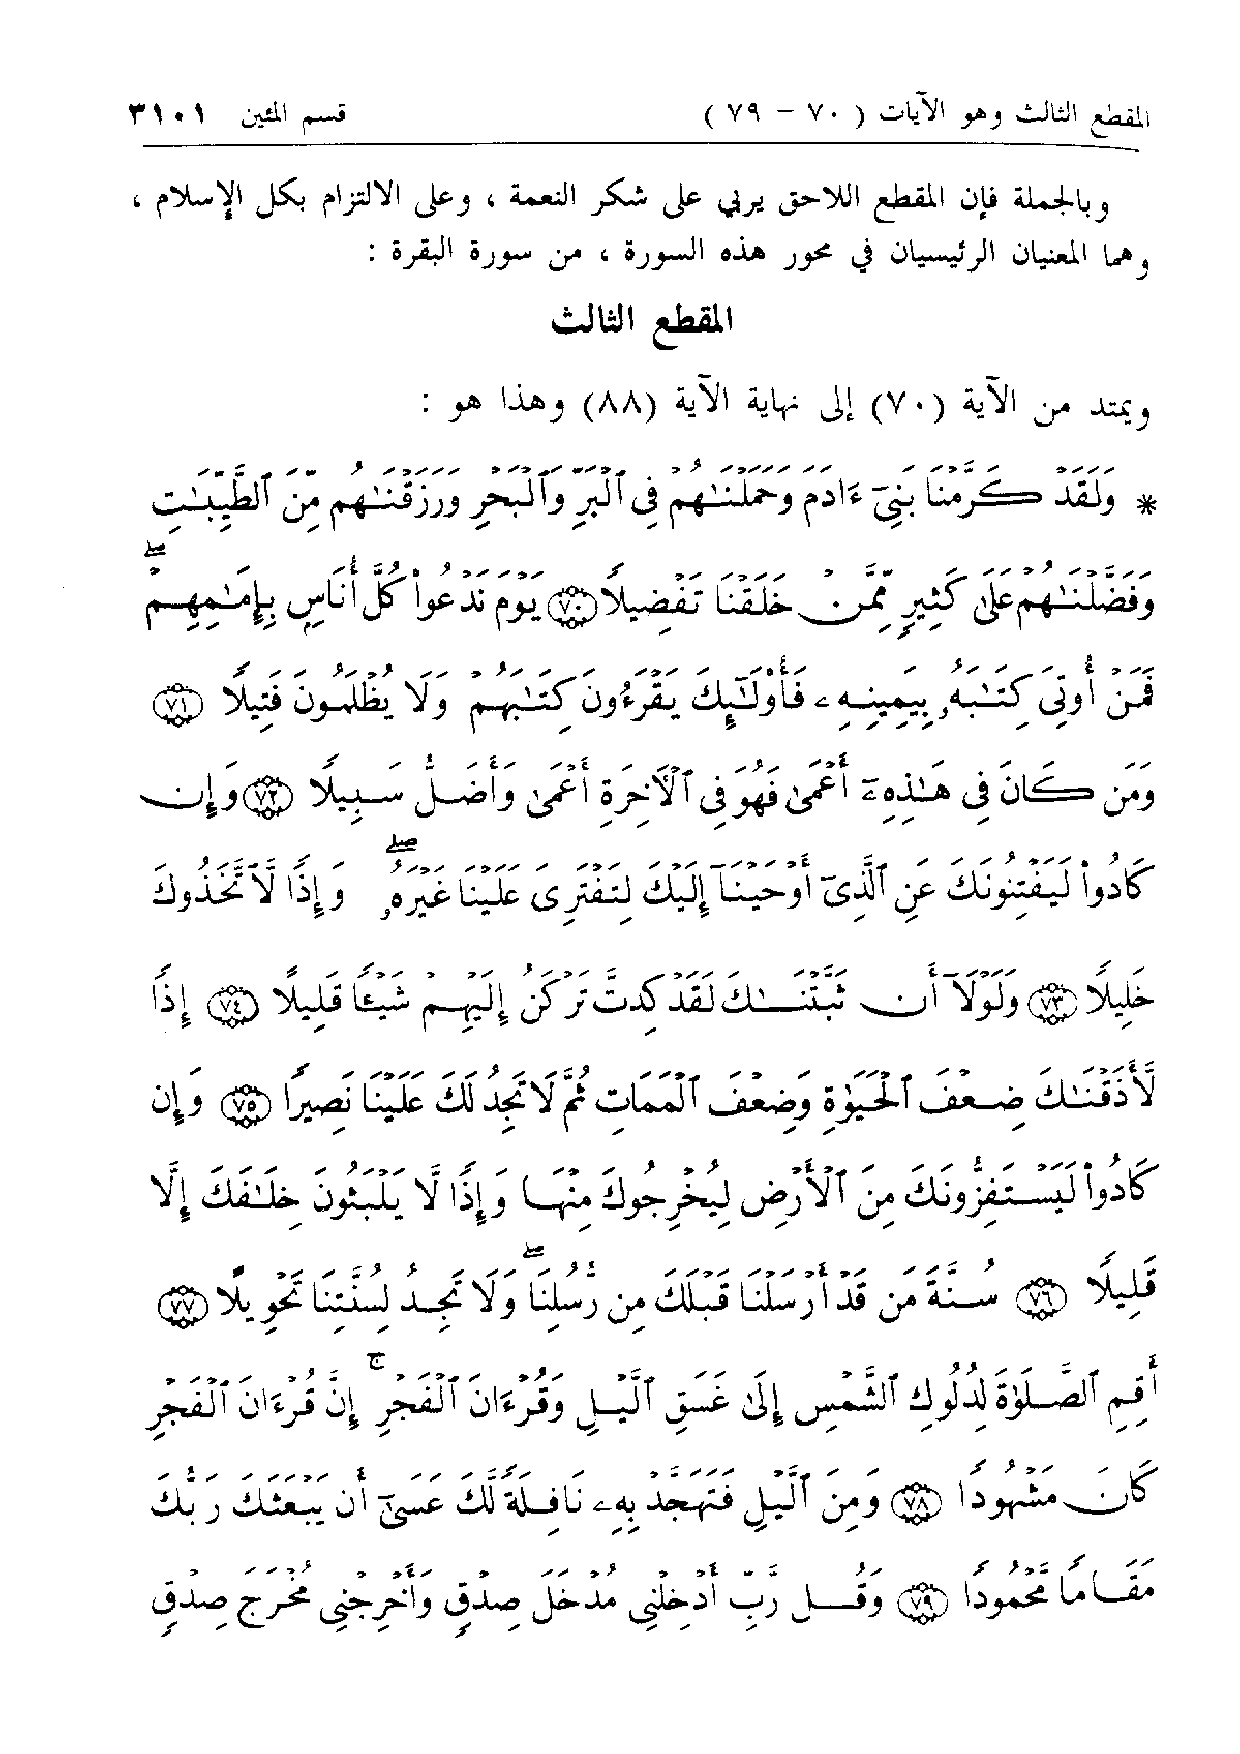 المقطع الثالث وهو الآيات ( ٧٠ - ٧٩ ) قسم المئين ٣١٠١
وبالجملة فإن المقطع اللاحق يربي على شكر النعمة ، وعلى الالتزام بكل الإسلام ،
وهما المعنيان الرئيسيان في محور هذه السورة ، من سورة البقرة :
المقطع الثالث
ويمتد من الآية (٧٠) إلى نهاية الآية (٨٨) وهذا هو :
* وَلَقَدْ كَرَّمْنَا بَنِىٓ ءَادَمَ وَحَمَلْنَٰهُمْ فِى ٱلْبَرِّ وَٱلْبَحْرِ وَرَزَقْنَٰهُم مِّنَ ٱلطَّيِّبَٰتِ
وَفَضَّلْنَٰهُمْ عَلَىٰ كَثِيرٍ مِّمَّنْ خَلَقْنَا تَفْضِيلًا ﴿٧٠﴾ يَوْمَ نَدْعُوا۟ كُلَّ أُنَاسٍۭ بِإِمَٰمِهِمْ ۖ
فَمَنْ أُوتِىَ كِتَٰبَهُۥ بِيَمِينِهِۦ فَأُو۟لَٰٓئِكَ يَقْرَءُونَ كِتَٰبَهُمْ وَلَا يُظْلَمُونَ فَتِيلًا ﴿٧١﴾
وَمَن كَانَ فِى هَٰذِهِۦٓ أَعْمَىٰ فَهُوَ فِى ٱلْأَخِرَةِ أَعْمَىٰ وَأَضَلُّ سَبِيلًا ﴿٧٢﴾ وَإِن
كَادُوا۟ لَيَفْتِنُونَكَ عَنِ ٱلَّذِىٓ أَوْحَيْنَآ إِلَيْكَ لِتَفْتَرِىَ عَلَيْنَا غَيْرَهُۥ ۖ وَإِذًا لَّٱتَّخَذُوكَ
خَلِيلًا ﴿٧٣﴾ وَلَوْلَآ أَن ثَبَّتْنَٰكَ لَقَدْ كِدتَّ تَرْكَنُ إِلَيْهِمْ شَيْـًٔا قَلِيلًا ﴿٧٤﴾ إِذًا
لَّأَذَقْنَٰكَ ضِعْفَ ٱلْحَيَوٰةِ وَضِعْفَ ٱلْمَمَاتِ ثُمَّ لَا تَجِدُ لَكَ عَلَيْنَا نَصِيرًا ﴿٧٥﴾ وَإِن
كَادُوا۟ لَيَسْتَفِزُّونَكَ مِنَ ٱلْأَرْضِ لِيُخْرِجُوكَ مِنْهَا وَإِذًا لَّا يَلْبَثُونَ خِلَٰفَكَ إِلَّا
قَلِيلًا ﴿٧٦﴾ سُنَّةَ مَن قَدْ أَرْسَلْنَا قَبْلَكَ مِن رُّسُلِنَا ۖ وَلَا تَجِدُ لِسُنَّتِنَا تَحْوِيلًا ﴿٧٧﴾
أَقِمِ ٱلصَّلَوٰةَ لِدُلُوكِ ٱلشَّمْسِ إِلَىٰ غَسَقِ ٱلَّيْلِ وَقُرْءَانَ ٱلْفَجْرِ ۚ إِنَّ قُرْءَانَ ٱلْفَجْرِ
كَانَ مَشْهُودًا ﴿٧٨﴾ وَمِنَ ٱلَّيْلِ فَتَهَجَّدْ بِهِۦ نَافِلَةً لَّكَ عَسَىٰٓ أَن يَبْعَثَكَ رَبُّكَ
مَقَامًا مَّحْمُودًا ﴿٧٩﴾ وَقُل رَّبِّ أَدْخِلْنِى مُدْخَلَ صِدْقٍ وَأَخْرِجْنِى مُخْرَجَ صِدْقٍ